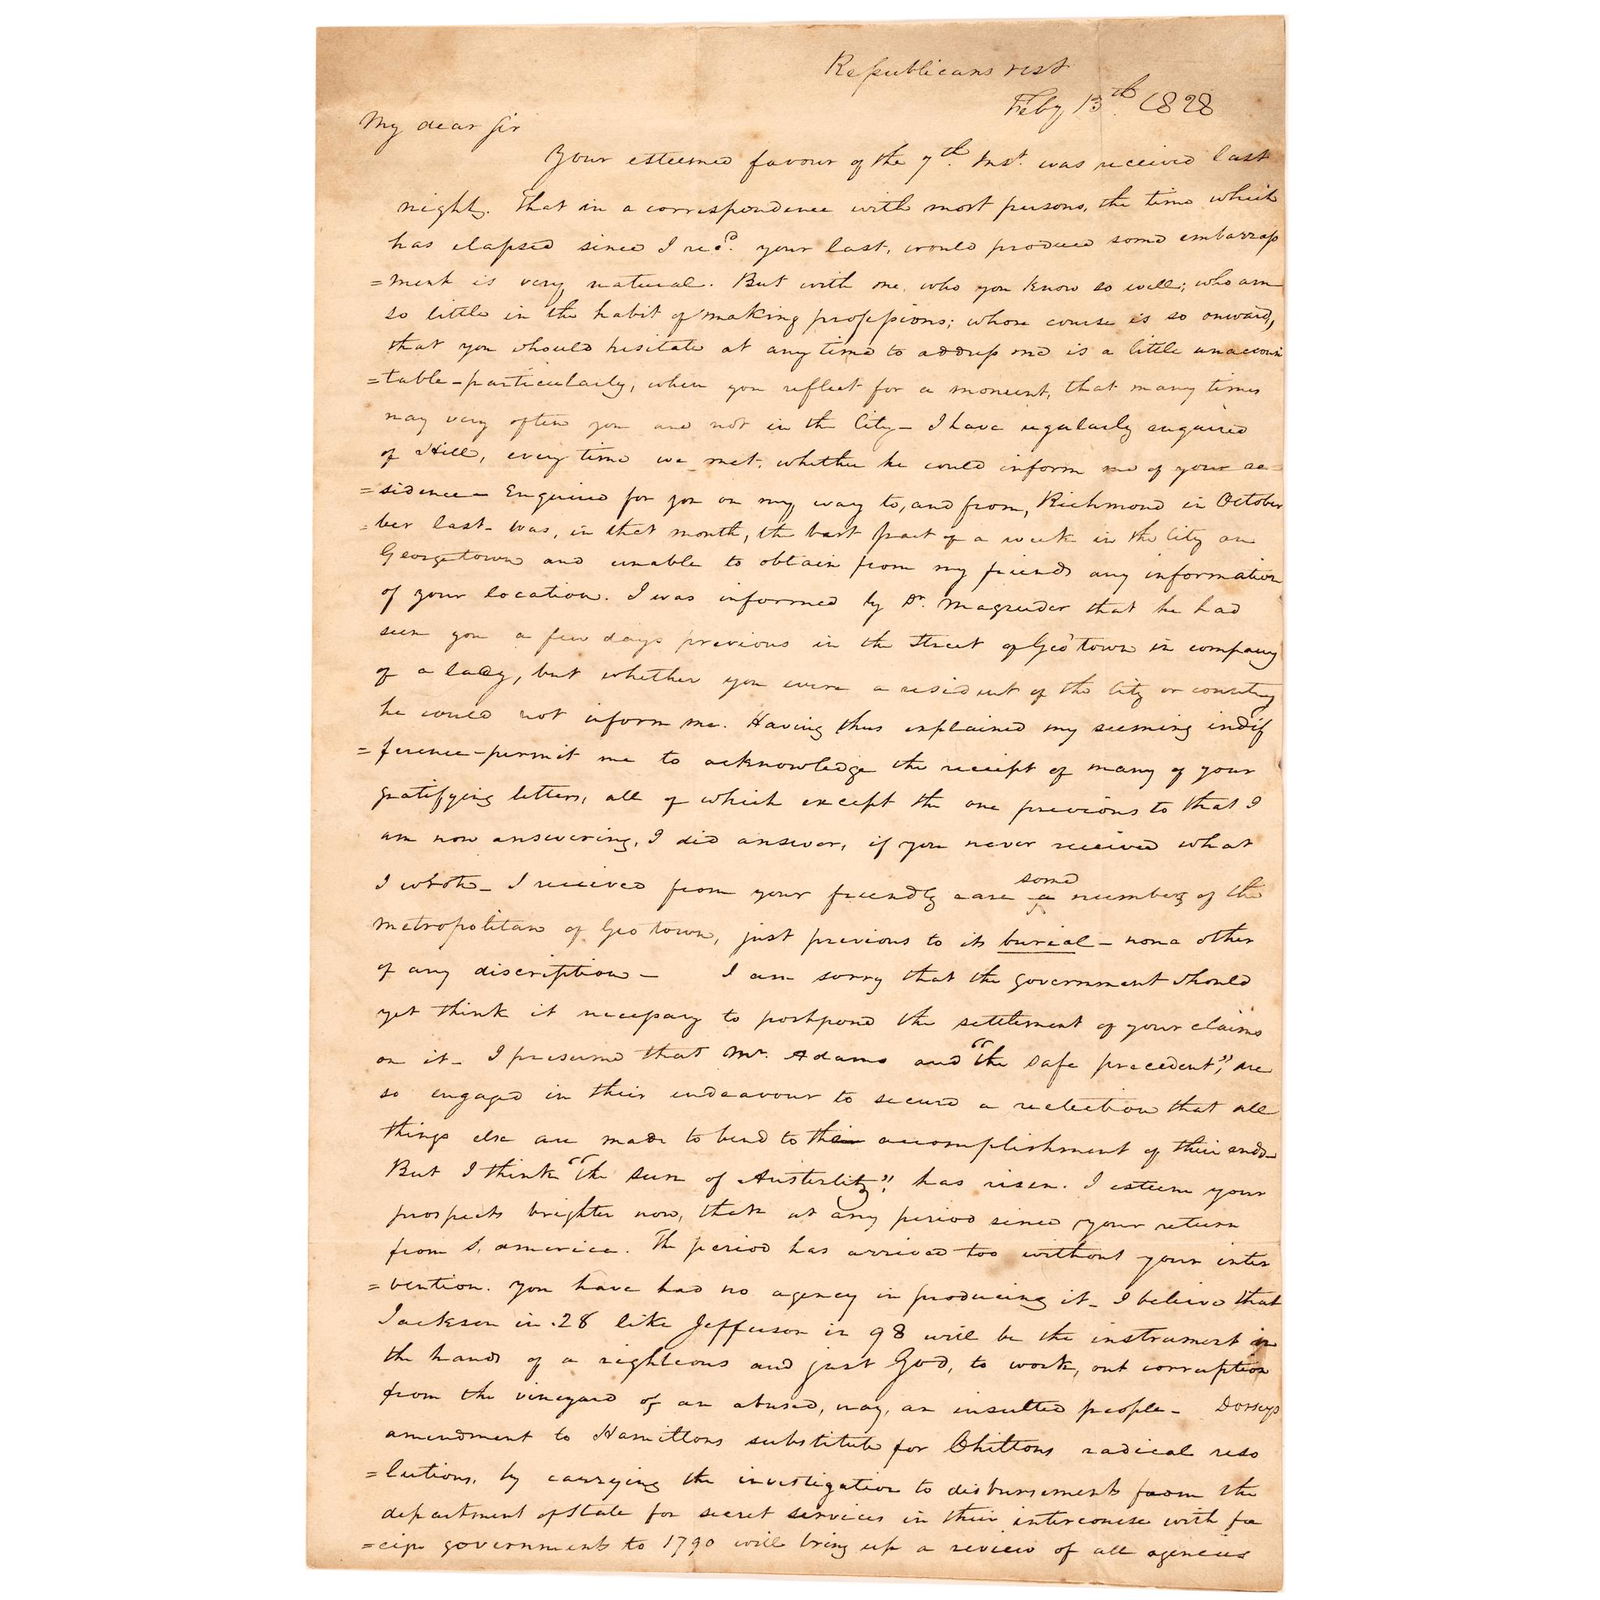 Republicans rest
Feby 13th. 1828
My dear Sir
Your esteemed favour of the 7th. Inst. was received last
night. That in a correspondence with most persons, the time which
has elapsed since I recd. your last, would produce some embarrass
=ment is very natural. But with one who you know so well; who am
so little in the habit of making professions; whose course is so onward,
that you should hesitate at any time to address me is a little unaccoun
=table - particularly, when you reflect for a moment, that many times
nay very often you are not in the City - I have regularly enquired
of Hill, every time we met, whether he could inform me of your re=
=sidence - Enquired for you on my way to, and from, Richmond in October
=ber last - was, in that month, the best part of a week in the City or
Georgetown and unable to obtain from my friends any information
of your location. I was informed by Dr. Magruder that he had
seen you a few days previous in the Street of Geo'town in company
of a lady, but whether you were a resident of the City or country
he could not inform me. Having thus explained my seeming indif
=ference - permit me to acknowledge the receipt of many of your
gratifying letters, all of which except the one previous to that I
am now answering, I did answer, if you never received what
I wrote - I received from your friendly care some numbers of the
metropolitan of Geo town, just previous to its burial - none other
of any discription - I am sorry that the government should
yet think it necessary to postpone the settlement of your claims
on it - I presume that Mr. Adams and "the safe precedent", are
so engaged in their endeavour to secure a reelection that all
things else are made to bend to the accomplishment of their ends -
But I think "the sun of Austerlitz" has risen. I esteem your
prospects brighter now, than at any period since your return
from S. america. The period has arrived too without your inter
=vention. you have had no agency in producing it - I believe that
Jackson in .28 like Jefferson in 98 will be the instrument in
the hands of a righteous and just God, to work, out corruption
from the vineyard of an abused, nay, an insulted people - Dorseys
amendment to Hamiltons substitute for Chiltons radical reso
=lutions, by carrying the investigation to disbursements from the
department of State for secret services in their intercourse with fo
=eign governments to 1790 will bring up a review of all agencies